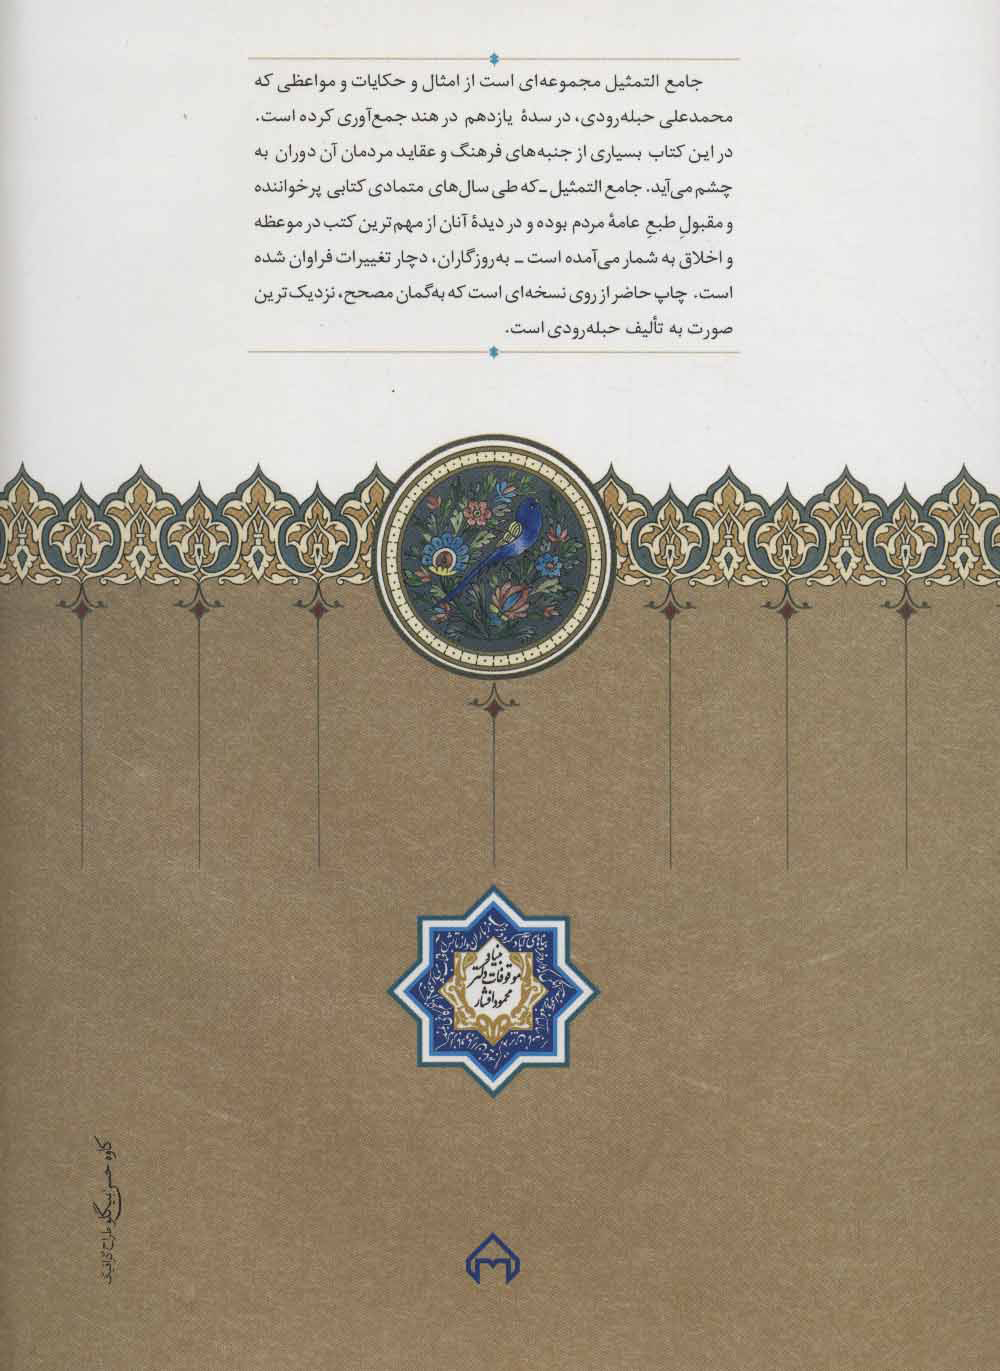 جامع التمثیل مجموعه‌ای است از امثال و حکایات و مواعظی که
محمدعلی حبله‌رودی، در سدهٔ یازدهم در هند جمع‌آوری کرده است.
در این کتاب بسیاری از جنبه‌های فرهنگ و عقاید مردمان آن دوران به
چشم می‌آید. جامع التمثیل ـ که طی سال‌های متمادی کتابی پرخواننده
و مقبولِ طبعِ عامهٔ مردم بوده و در دیدهٔ آنان از مهم‌ترین کتب در موعظه
و اخلاق به شمار می‌آمده است ـ به‌روزگاران، دچار تغییرات فراوان شده
است. چاپ حاضر از روی نسخه‌ای است که به‌گمان مصحح، نزدیک‌ترین
صورت به تألیف حبله‌رودی است.
بنیاد
موقوفات دکتر
محمود افشار
کاوه حسن بیگلو طراح گرافیک